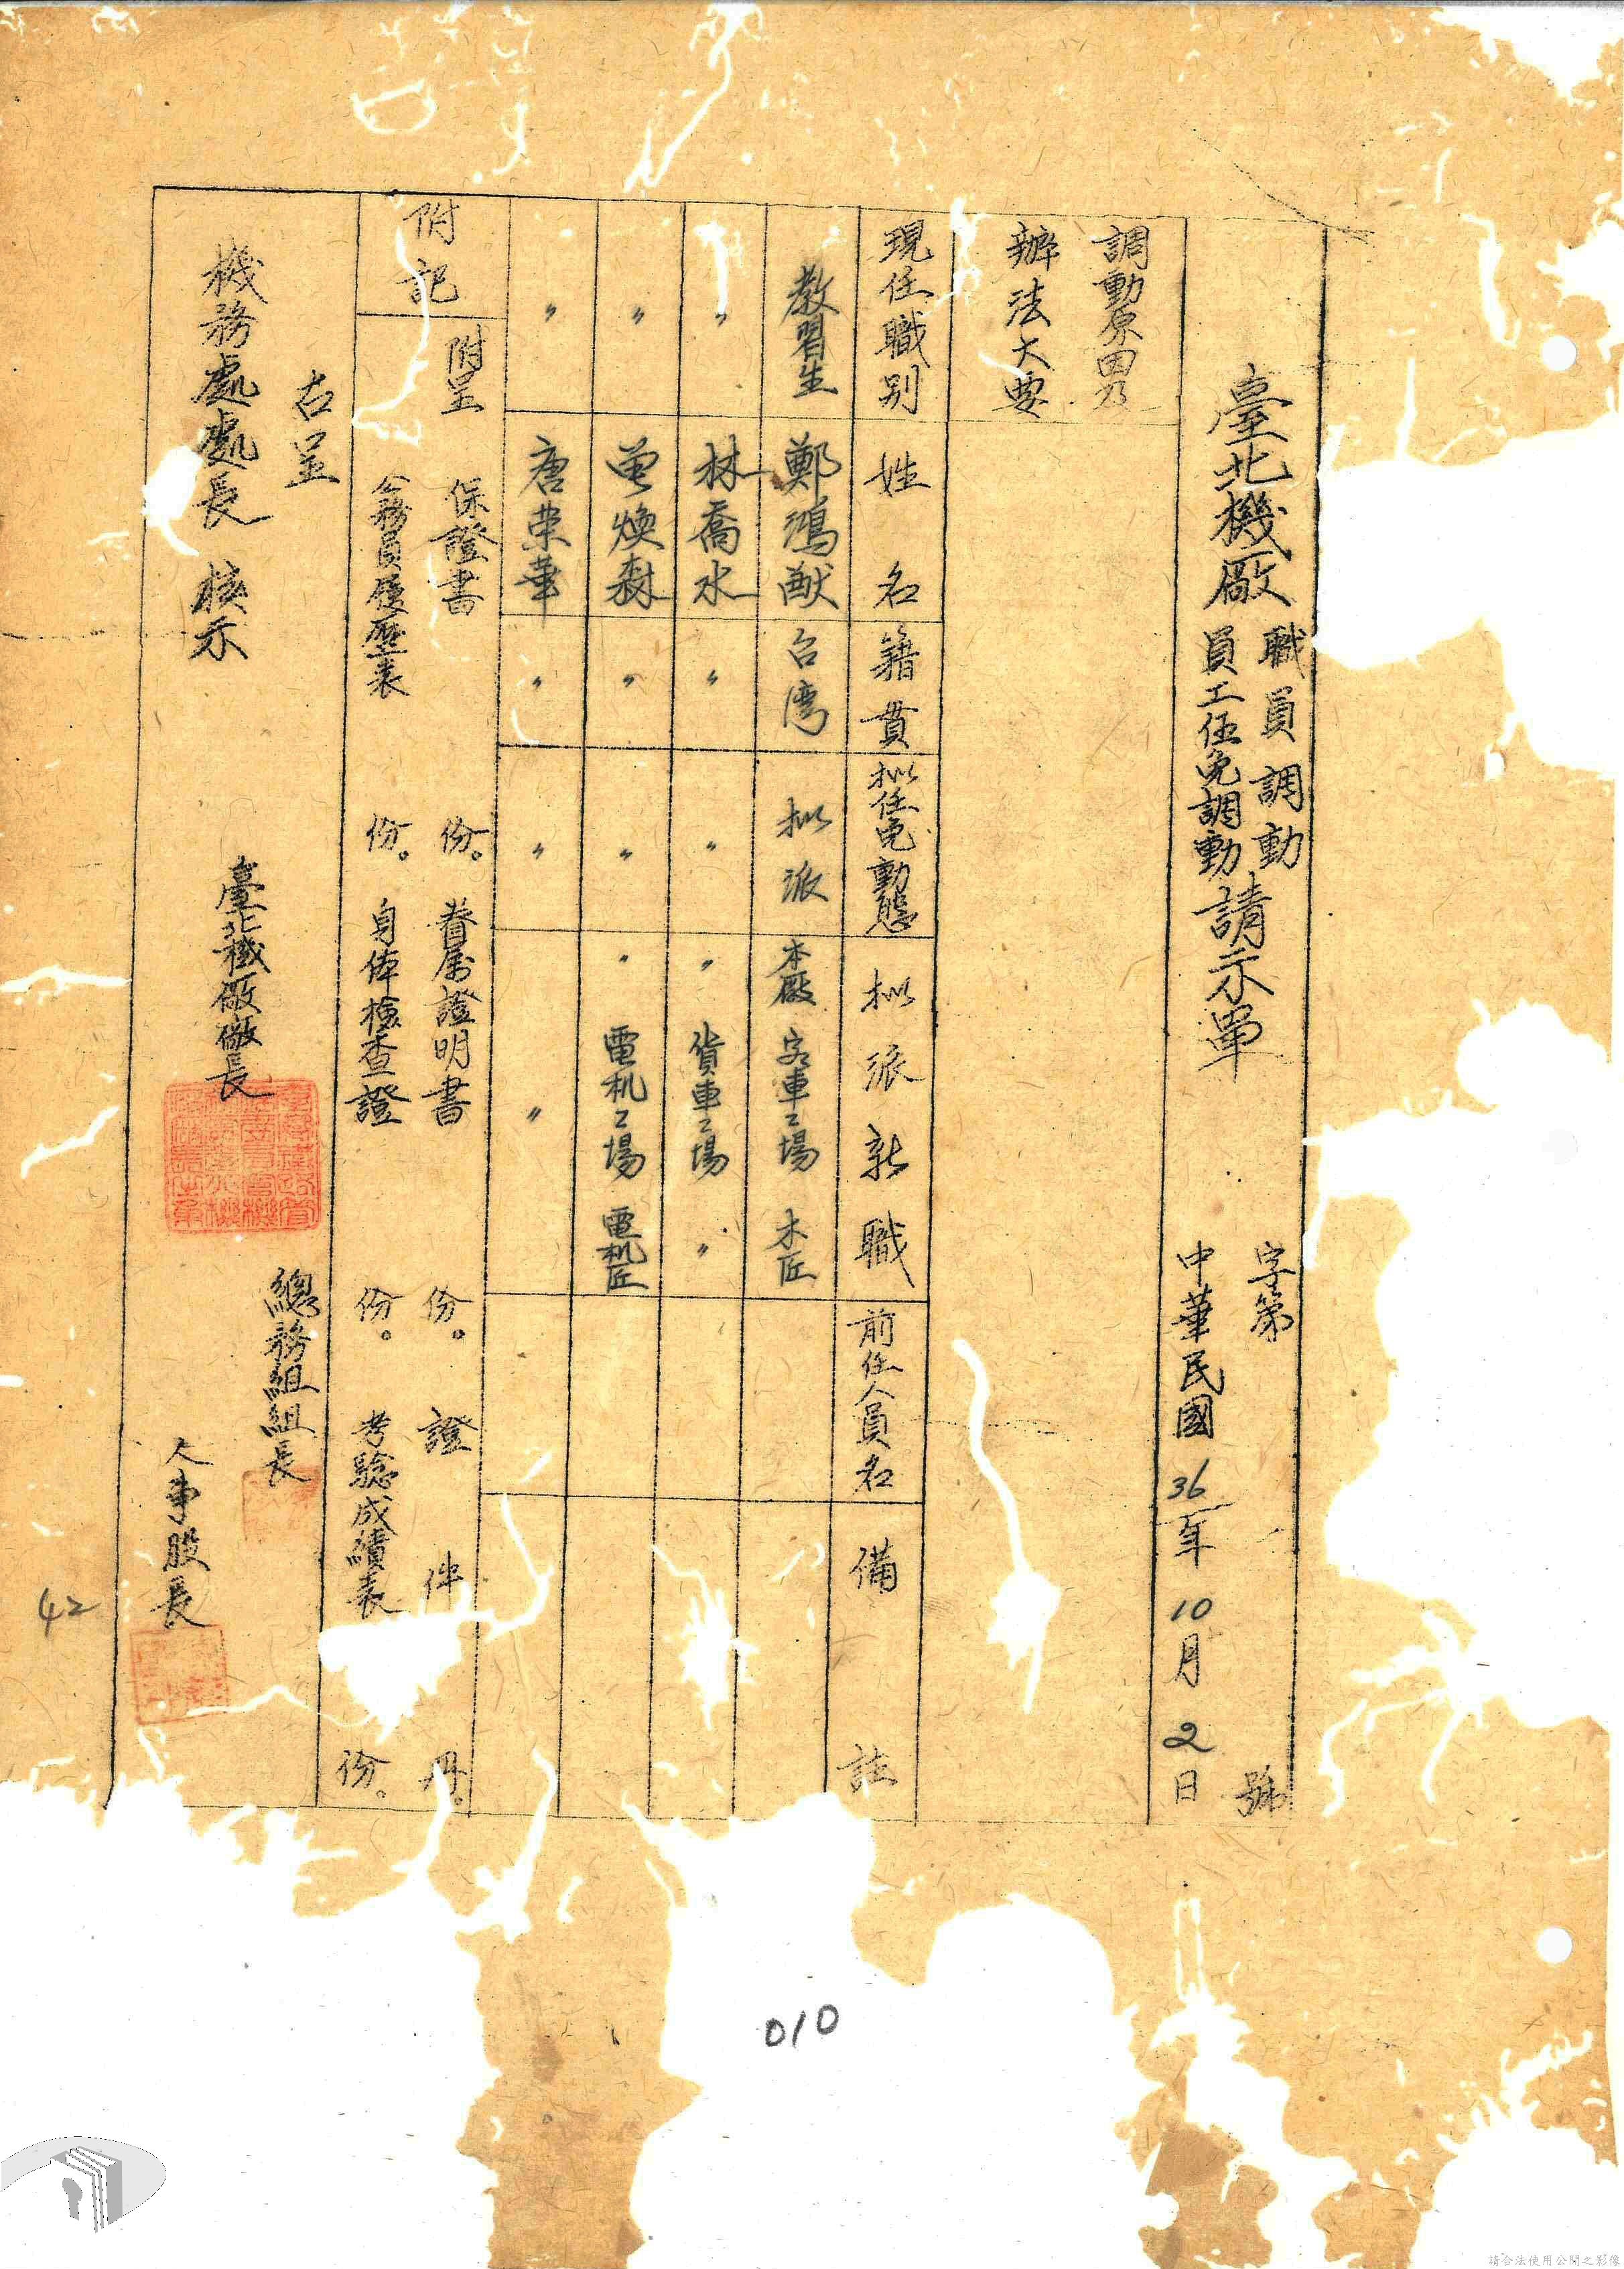 字第 號
臺北機廠 職員調動 員工任免調動 請示單
中華民國36年10月2日
調動原因及
辦法大要
現任職別 姓名 籍貫 拟任免動態 拟派新職 前任人員名 備註
教習生 鄭鴻猷 台湾 拟派 本廠 客車工場 木匠
〃 林喬水 〃 〃 〃 貨車工場 〃
〃 曾煥森 〃 〃 〃 電机工場 電机匠
〃 唐荣華 〃 〃 〃
附記
附呈 保證書 份。 眷屬證明書 份。 證件 份。
公務員履歷表 份。 身体檢查證 份。 考驗成績表 份。
右呈
機務處處長 核示
臺北機廠廠長
總務組組長
人事股長
42
010
請合法使用公開之影像